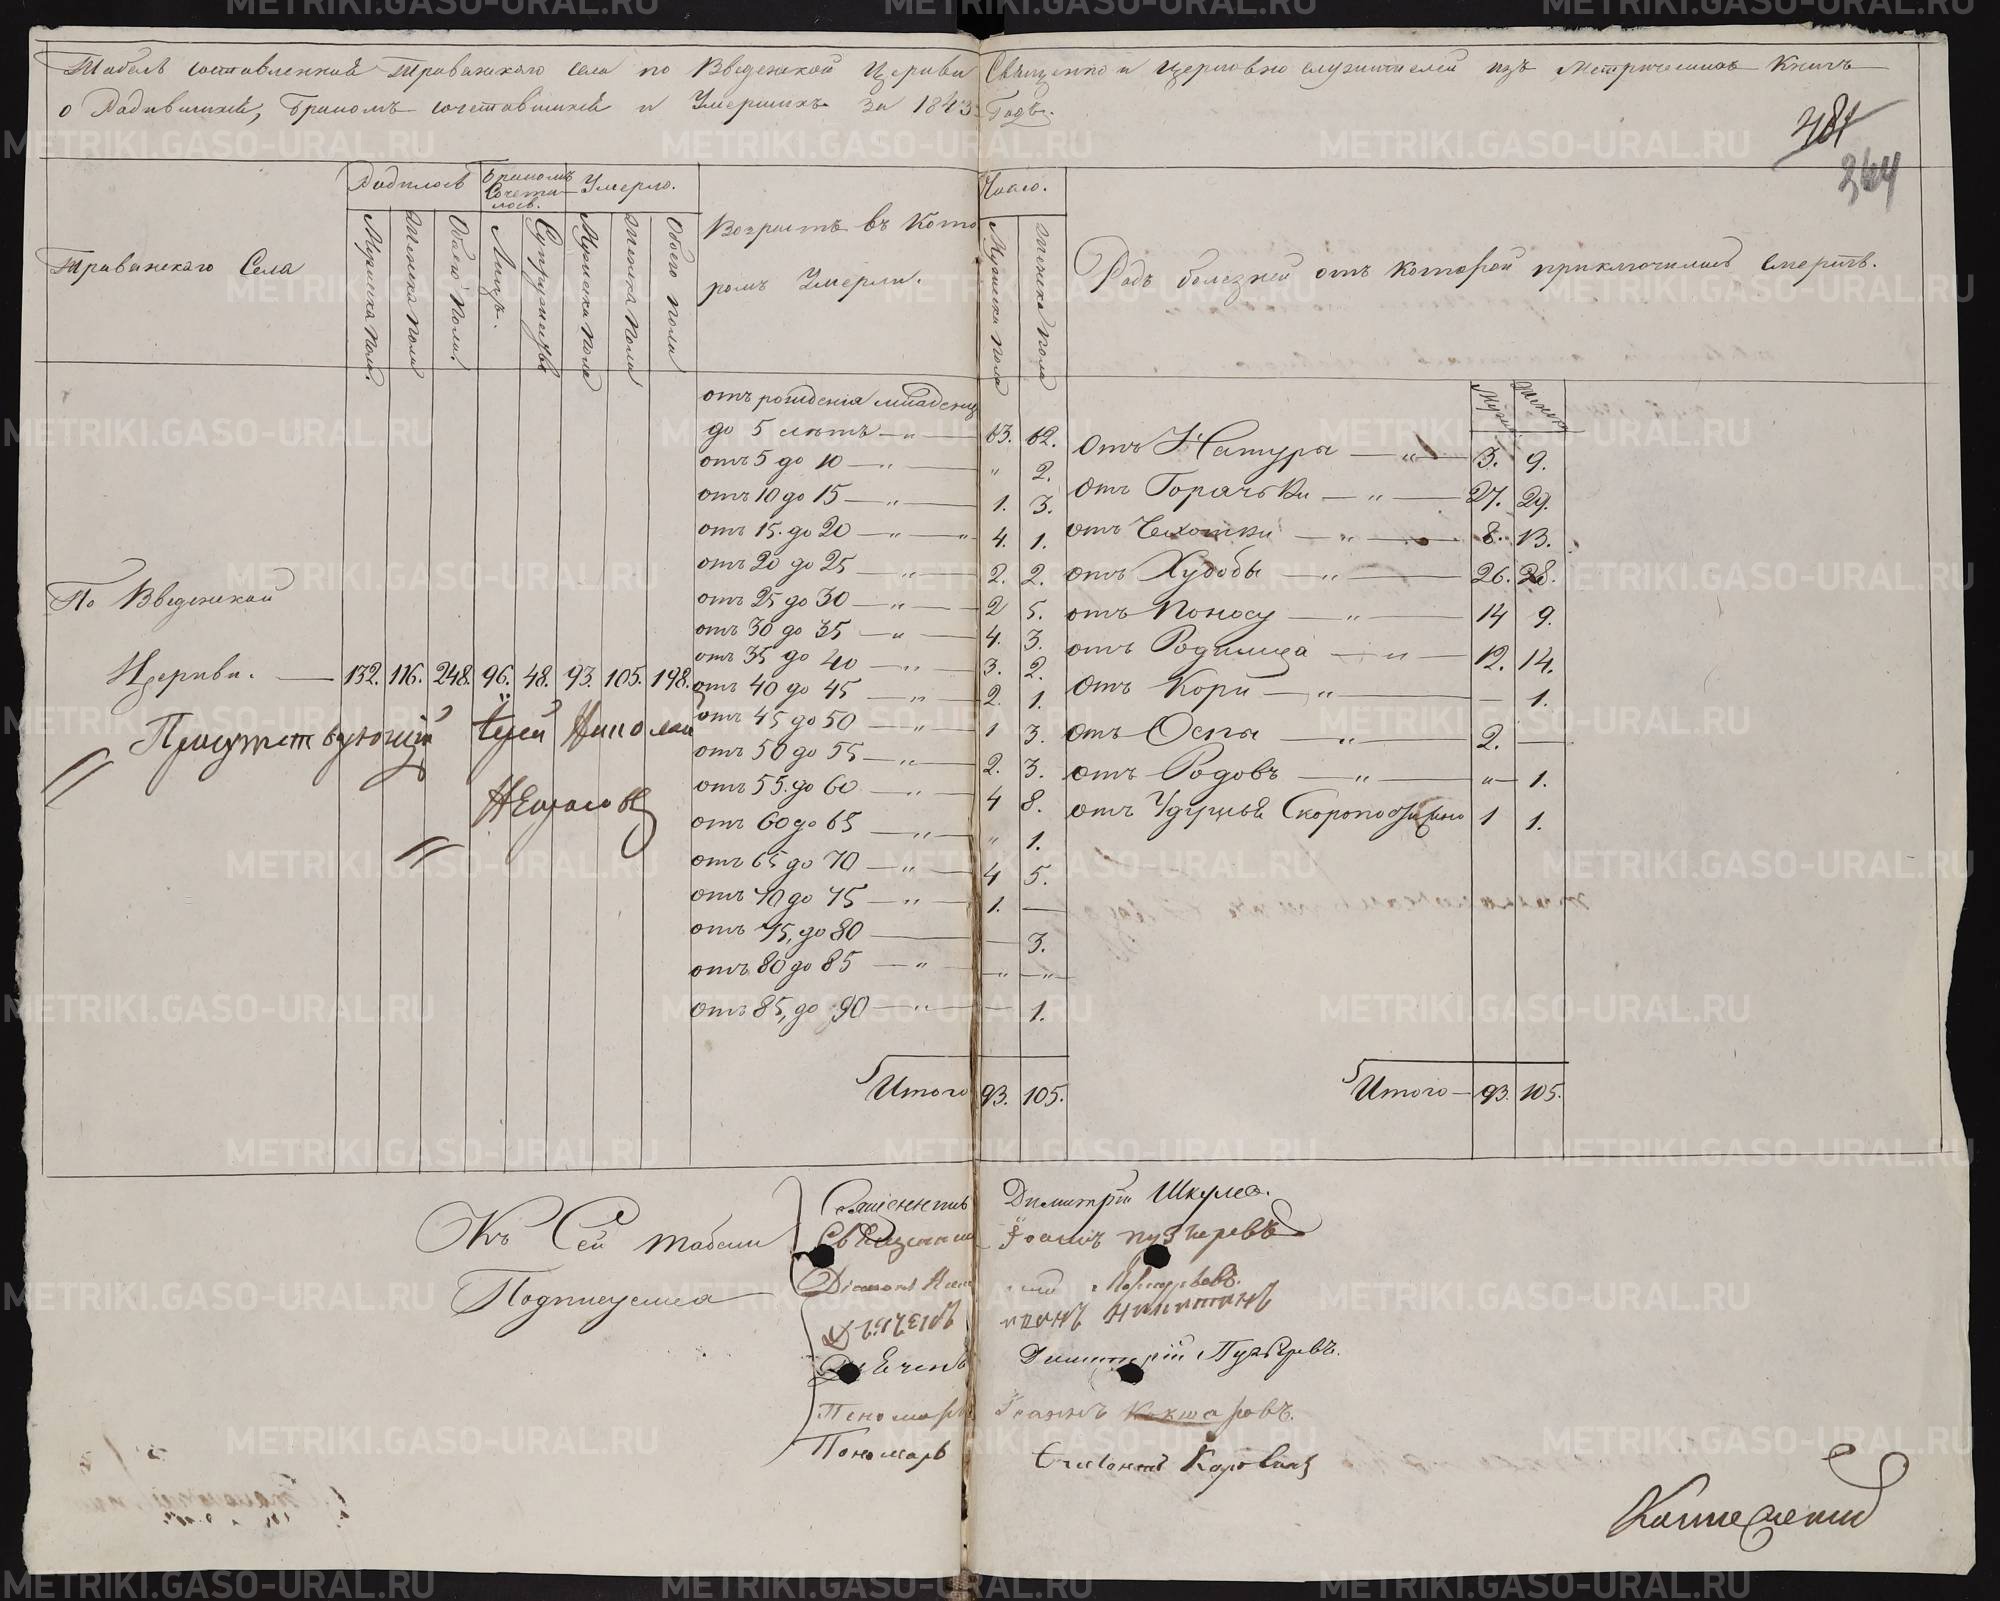 Табель составленная Травянскаго села по Введенской Церкви Священно и церковно служителей изъ Метрическихъ Книгъ
о Родившихся, Бракомъ сочетавшихся и Умершихъ за 1843 Годъ.
481
364
Родилось
Бракомъ Сочета-лось.
Умерло.
Число.
Травянскаго Села
Мужеска Пола.
Женска Пола
Обоего Пола.
Лицъ.
Супружествъ
Мужеска Пола
Женска Пола
Обоего Пола
Возрастъ въ Кото
ромъ Умерли.
Мужеска Пола
Женска Пола
Родъ болезней отъ которой приключилась смерть.
Муж.
Женск.
отъ рожденія младенц
до 5 летъ — „ — 63. 62.
отъ 5 до 10 — „ — „ 2.
отъ 10 до 15 — „ — 1. 3.
отъ 15. до 20 — „ — „ 4. 1.
отъ 20 до 25 — „ — 2. 2.
отъ 25 до 30 — „ — 2 5.
отъ 30 до 35 — „ — 4. 3.
отъ 35 до 40 — „ — 3. 2.
отъ 40 до 45 — „ — 2. 1.
отъ 45 до 50 — „ — 1 3.
отъ 50 до 55 — „ — 2. 3.
отъ 55. до 60 — „ — 4 8.
отъ 60 до 65 — „ — „ 1.
отъ 65 до 70 — „ — 4 5.
отъ 70 до 75 — „ — 1. —
отъ 75, до 80 — — 3.
отъ 80 до 85 — „ — „ — „ —
отъ 85, до 90 — „ — — 1.
Итого 93. 105.
отъ Натуры — „ — 3. 9.
отъ Горячьки — „ — 27. 29.
отъ Чахотки — „ — 8. 13.
отъ Худобы — „ — 26. 28.
отъ Поносу — „ — 14 9.
отъ Родимца — „ — 12. 14.
отъ Кори — „ — — 1.
отъ Оспы — „ — 2. —
отъ Родовъ — „ — „ — 1.
отъ Удушья Скоропостижно 1 1.
Итого — 93. 105.
По Введенской
Церкви. — 132. 116. 248. 96. 48. 93. 105. 198.
Присутствующій Іерей Николай
Къ Сей табели
Подписуемся
Священникъ Димитрій
Священникъ Іоаннъ Пузыревъ
Діаконъ
Дьячекъ Димитрій Пузыревъ.
Пономарь Іоаннъ Кокшаровъ.
Пономарь Коровинъ
METRIKI.GASO-URAL.RU